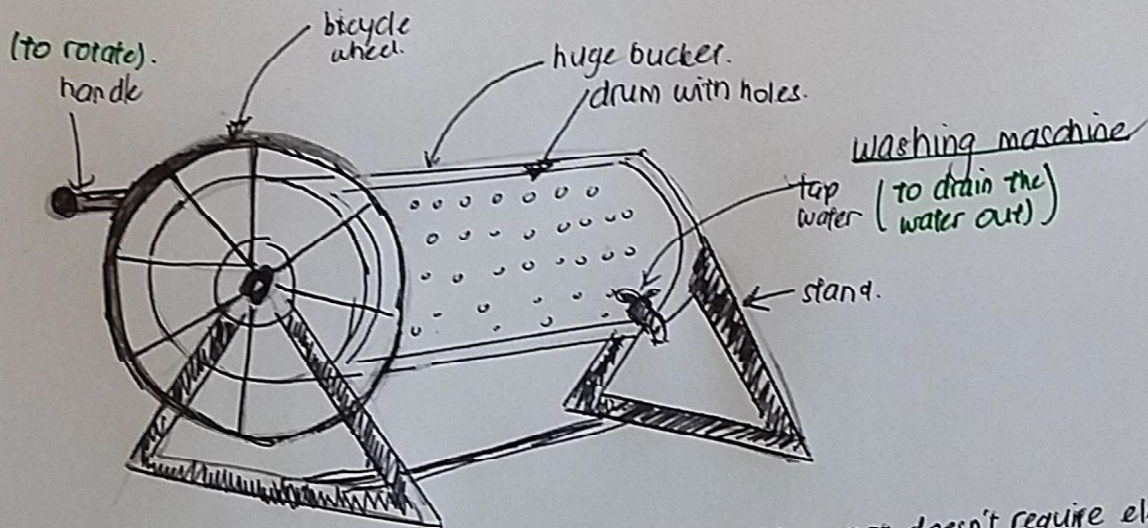 (to rotate).
handle
bicycle
wheel.
huge bucker.
drum with holes.
washing maschine
tap
water (to drain the
water out)
stand.
doesn't require